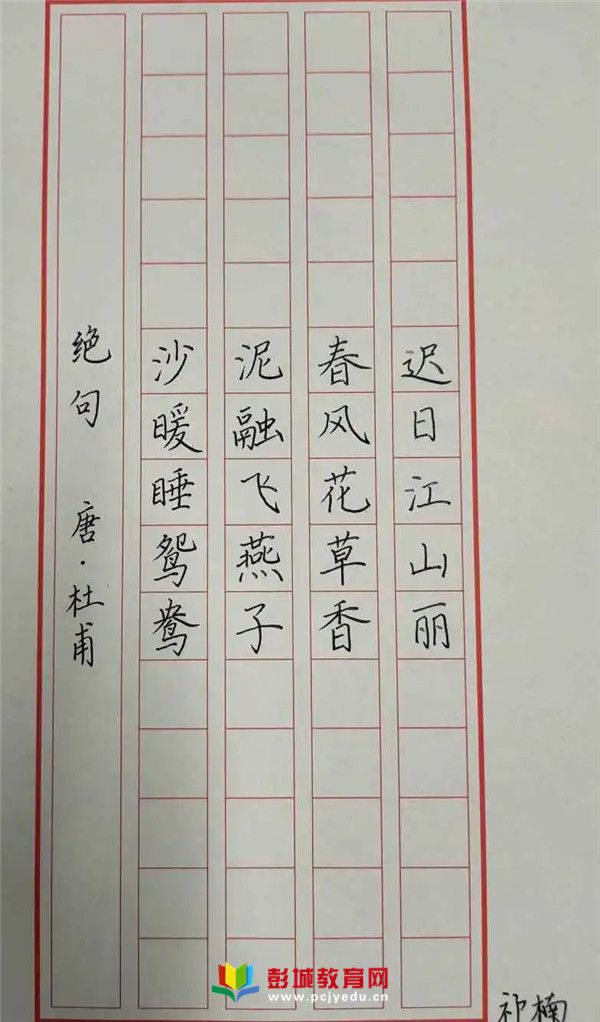 迟日江山丽
春风花草香
泥融飞燕子
沙暖睡鸳鸯
绝句 唐·杜甫
祁楠
彭城教育网
www.pcjyedu.cn